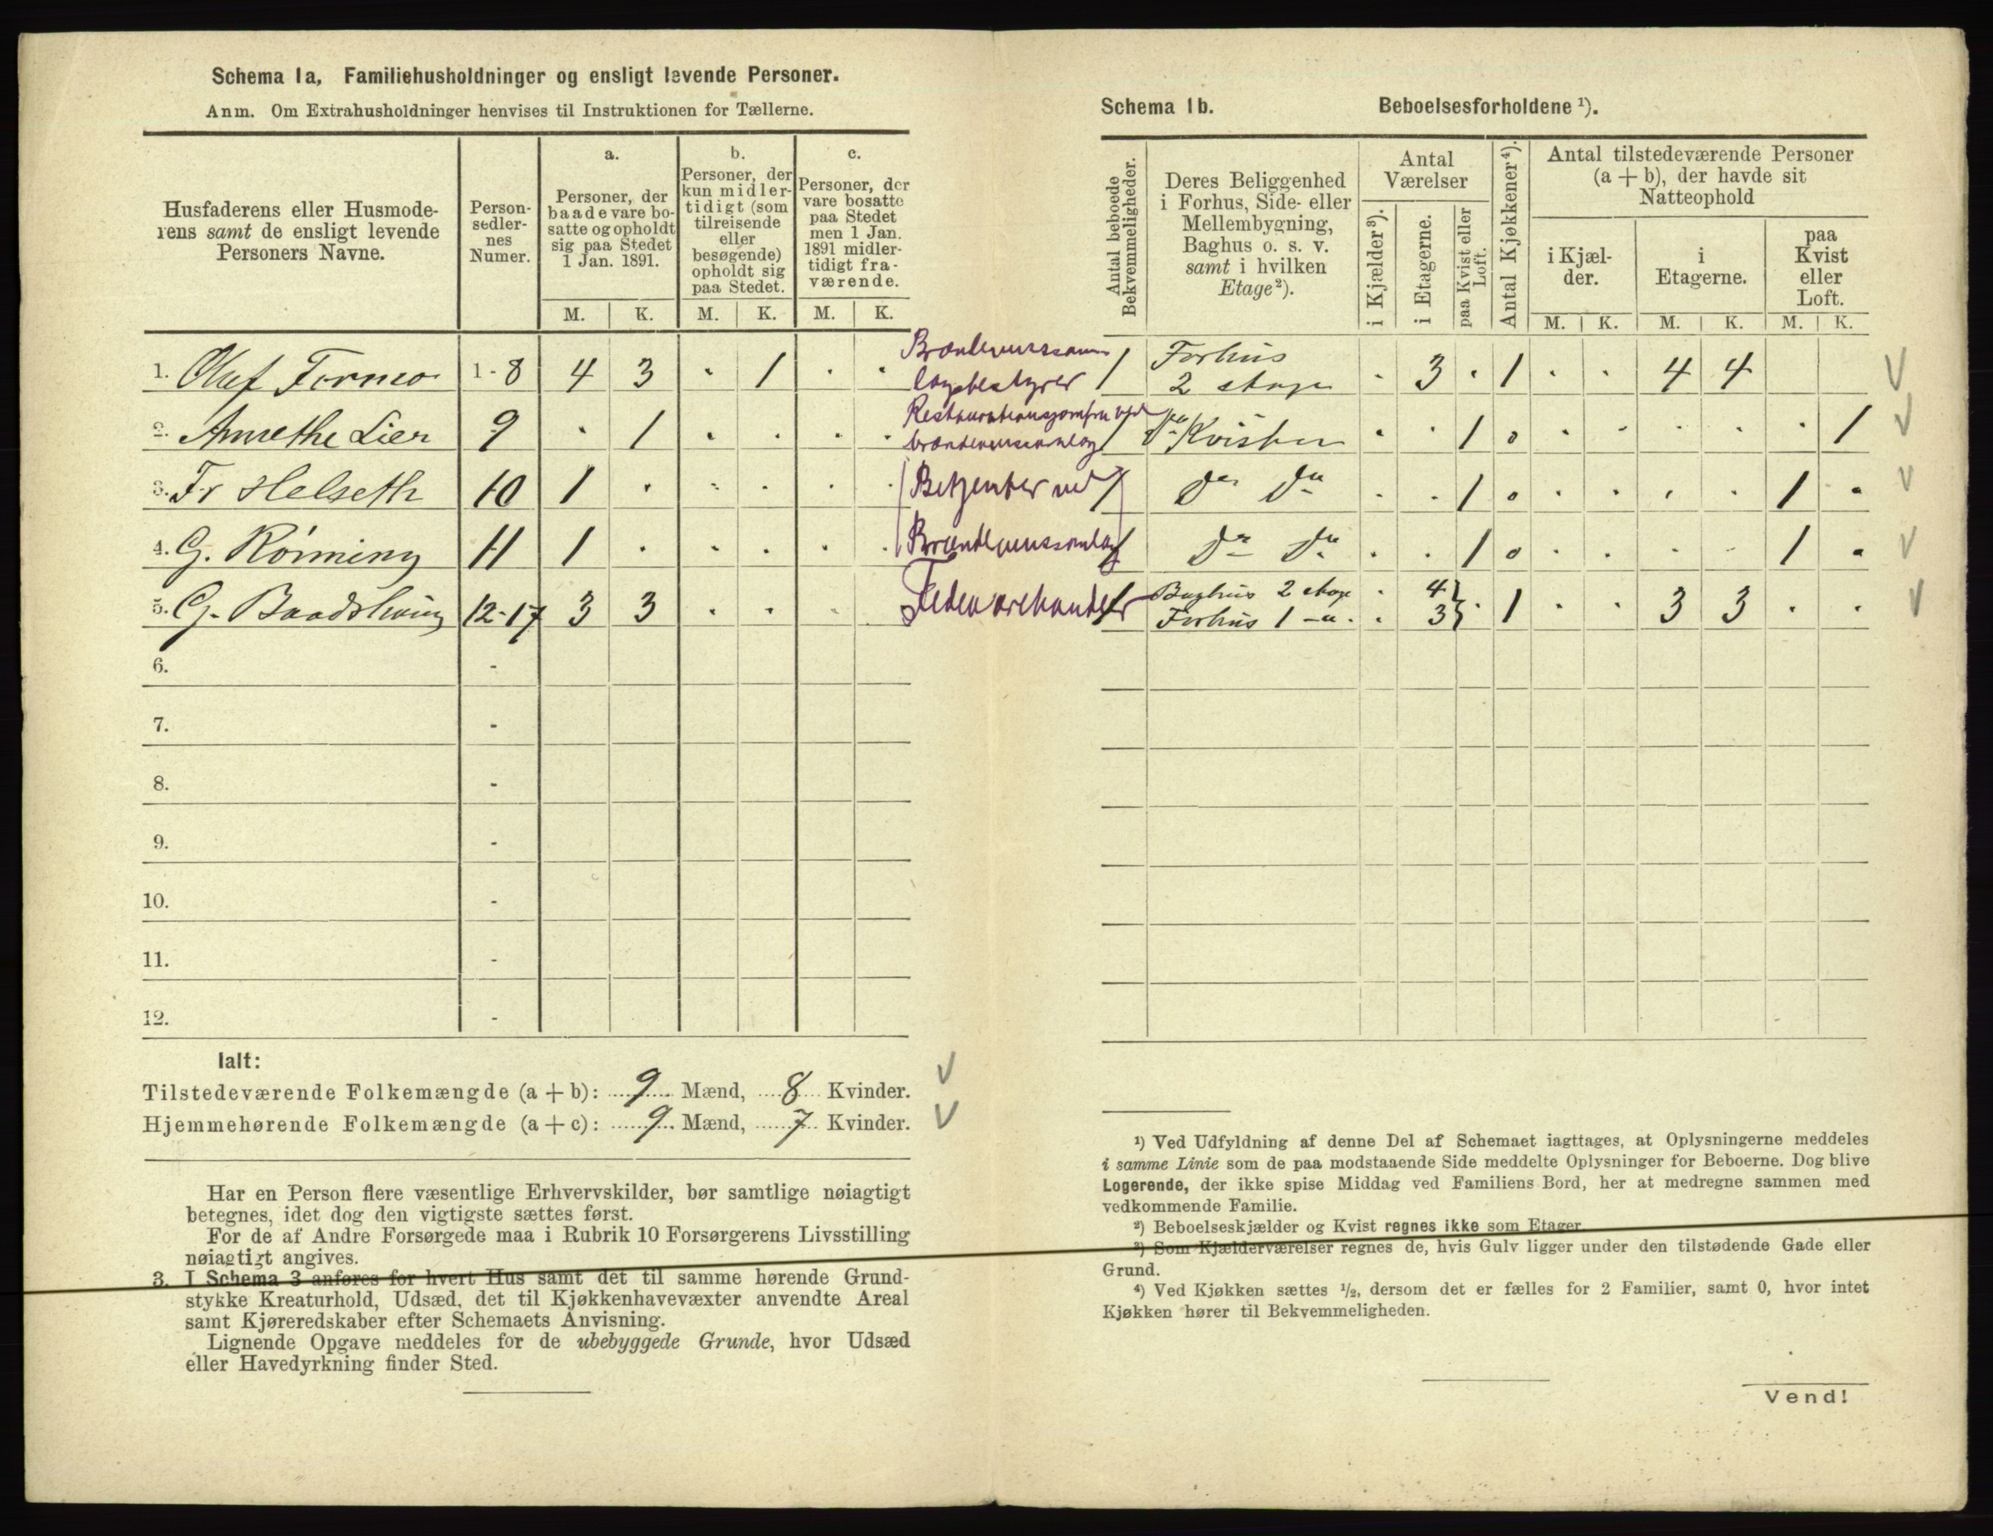 Schema 1a, Familiehusholdninger og ensligt levende Personer.
Anm. Om Extrahusholdninger henvises til Instruktionen for Tællerne.
Husfaderens eller Husmoderens samt de ensligt levende Personers Navne.
Personsedlernes Numer.
a.
Personer, der baade vare bosatte og opholdt sig paa Stedet 1 Jan. 1891.
b.
Personer, der kun midlertidigt (som tilreisende eller besøgende) opholdt sig paa Stedet.
c.
Personer, der vare bosatte paa Stedet men 1 Jan. 1891 midlertidigt fraværende.
M. K. M. K. M. K.
1. Oluf Formo 1-8 4 3 · 1 · · Brændevinssam
lagsbestyrer
2. Annethe Lier 9 · 1 · · · · Restaurationsjomfru ved
brændevinssamlag
3. Fr Helseth 10 1 · · · · · Betjenter ved
4. G. Rönning 11 1 · · · · · Brændevinssamlag
5. G. Baadshaug 12-17 3 3 · · · Fedevarehandler
6. -
7. -
8. -
9. -
10. -
11. -
12. -
Ialt:
Tilstedeværende Folkemængde (a + b): 9 Mænd, 8 Kvinder.
Hjemmehørende Folkemængde (a + c): 9 Mænd, 7 Kvinder.
Har en Person flere væsentlige Erhvervskilder, bør samtlige nøiagtigt
betegnes, idet dog den vigtigste sættes først.
For de af Andre Forsørgede maa i Rubrik 10 Forsørgerens Livsstilling
nøiagtigt angives.
3. I Schema 3 anføres for hvert Hus samt det til samme hørende Grund-
stykke Kreaturhold, Udsæd, det til Kjøkkenhavevæxter anvendte Areal
samt Kjøreredskaber efter Schemaets Anvisning.
Lignende Opgave meddeles for de ubebyggede Grunde, hvor Udsæd
eller Havedyrkning finder Sted.
Schema 1b. Beboelsesforholdene ¹).
Antal beboede Bekvemmeligheder.
Deres Beliggenhed i Forhus, Side- eller Mellembygning, Baghus o. s. v. samt i hvilken Etage²).
Antal Værelser
i Kjælder³).
i Etagerne.
paa Kvist eller Loft.
Antal Kjøkkener⁴).
Antal tilstedeværende Personer
(a + b), der havde sit
Natteophold
i Kjælder.
i Etagerne.
paa Kvist eller Loft.
M. K. M. K. M. K.
1 Forhus
2 etage · 3 · 1 · · 4 4
1 paa Kvisten · · 1 0 · · · · · 1
1 do do · · 1 0 · · · · 1 ·
1 do do · · 1 0 · · · · 1 ·
1 Baghus 2 etage · 4
Forhus 1 -"- · 3 · 1 · · 3 3 · ·
¹) Ved Udfyldning af denne Del af Schemaet iagttages, at Oplysningerne meddeles
i samme Linie som de paa modstaaende Side meddelte Oplysninger for Beboerne. Dog blive
Logerende, der ikke spise Middag ved Familiens Bord, her at medregne sammen med
vedkommende Familie.
²) Beboelseskjælder og Kvist regnes ikke som Etager
³) Som Kjælderværelser regnes de, hvis Gulv ligger under den tilstødende Gade eller
Grund.
⁴) Ved Kjøkken sættes ½, dersom det er fælles for 2 Familier, samt 0, hvor intet
Kjøkken hører til Bekvemmeligheden.
Vend!